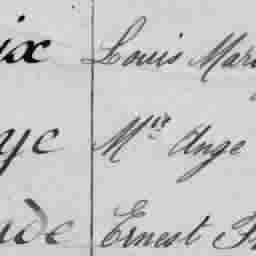 ix Louis Mar
ye M.ie Ange
ude Ernest F